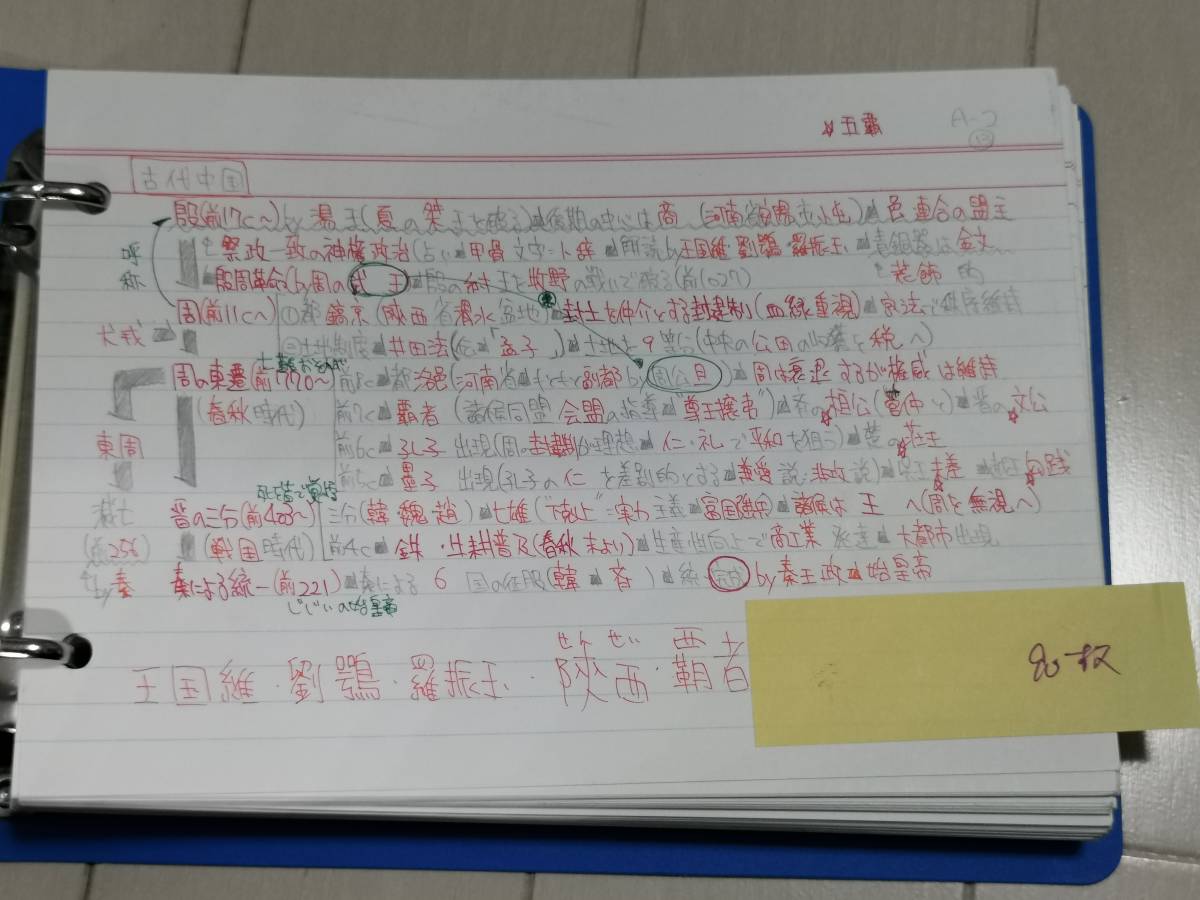 ☆五覇
A-2
⑬
古代中国
殷(前17c〜)by 湯王(夏の桀王を破る)後期の中心は商(河南省安陽市小屯)邑連合の盟主
呼称
祭政一致の神権政治(占い 甲骨文字=卜辞 解読by王国維・劉鶚・羅振玉 青銅器は金文
殷周革命(by周の武王 殷の紂王を牧野の戦いで破る(前1027) 装飾的
周(前11c〜) ①都 鎬京(陝西省渭水盆地) 封土を仲介とする封建制(血縁重視) 宗法で秩序維持
犬戎
②土地制度 井田法(伝「孟子」) 土地を9等に(中央の公田の収穫を税へ)
周の東遷(前770〜) 前8c 都洛邑(河南省 もともと副都by周公旦) 周は衰退するが権威は維持
(春秋時代) 前7c 覇者(諸侯同盟 会盟の指導 "尊王攘夷") 斉の桓公(管仲 晋の文公
東周
前6c 孔子出現(周の封建制が理想 仁・礼で平和を狙う) 楚の荘王
前5c 墨子 出現(孔子の仁を差別的とする 兼愛説・非攻説) 夫差 勾践
滅亡
晋の三分(前403〜) 三分(韓 魏 趙) 七雄("下剋上"=実力主義 富国強兵) 諸侯は王へ(周を無視へ)
(前256) (戦国時代) 前4c 鉄・牛耕普及(春秋末より) 生産性向上で商工業発達 大都市出現
by秦 秦による統一(前221) 秦による6国の征服(韓 斉) 統一完成by秦王政 始皇帝
じじいの始皇帝
王国維・劉鶚・羅振玉・陝西・覇者
せんせい
枚